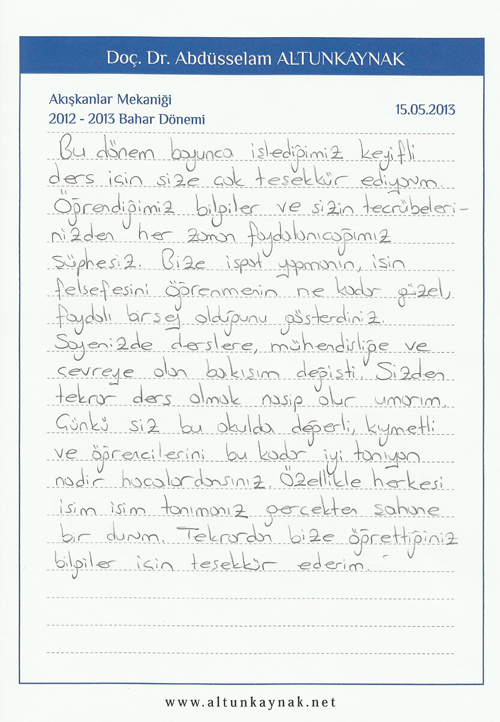 Doç. Dr. Abdüsselam ALTUNKAYNAK
Akışkanlar Mekaniği
2012 - 2013 Bahar Dönemi
15.05.2013
Bu dönem boyunca işlediğimiz keyifli
ders için size çok teşekkür ediyorum.
Öğrendiğimiz bilgiler ve sizin tecrübeleri-
nizden her zaman faydalanıcağımız
şüphesiz. Bize ispat yapmanın, işin
felsefesini öğrenmenin ne kadar güzel,
faydalı birşey olduğunu gösterdiniz.
Sayenizde derslere, mühendisliğe ve
çevreye olan bakışım değişti. Sizden
tekrar ders almak nasip olur umarım.
Çünkü siz bu okulda değerli, kıymetli
ve öğrencilerini bu kadar iyi tanıyan
nadir hocalardansınız. Özellikle herkesi
isim isim tanımanız gerçekten şahane
bir durum. Tekrardan bize öğrettiğiniz
bilgiler için teşekkür ederim.
www.altunkaynak.net